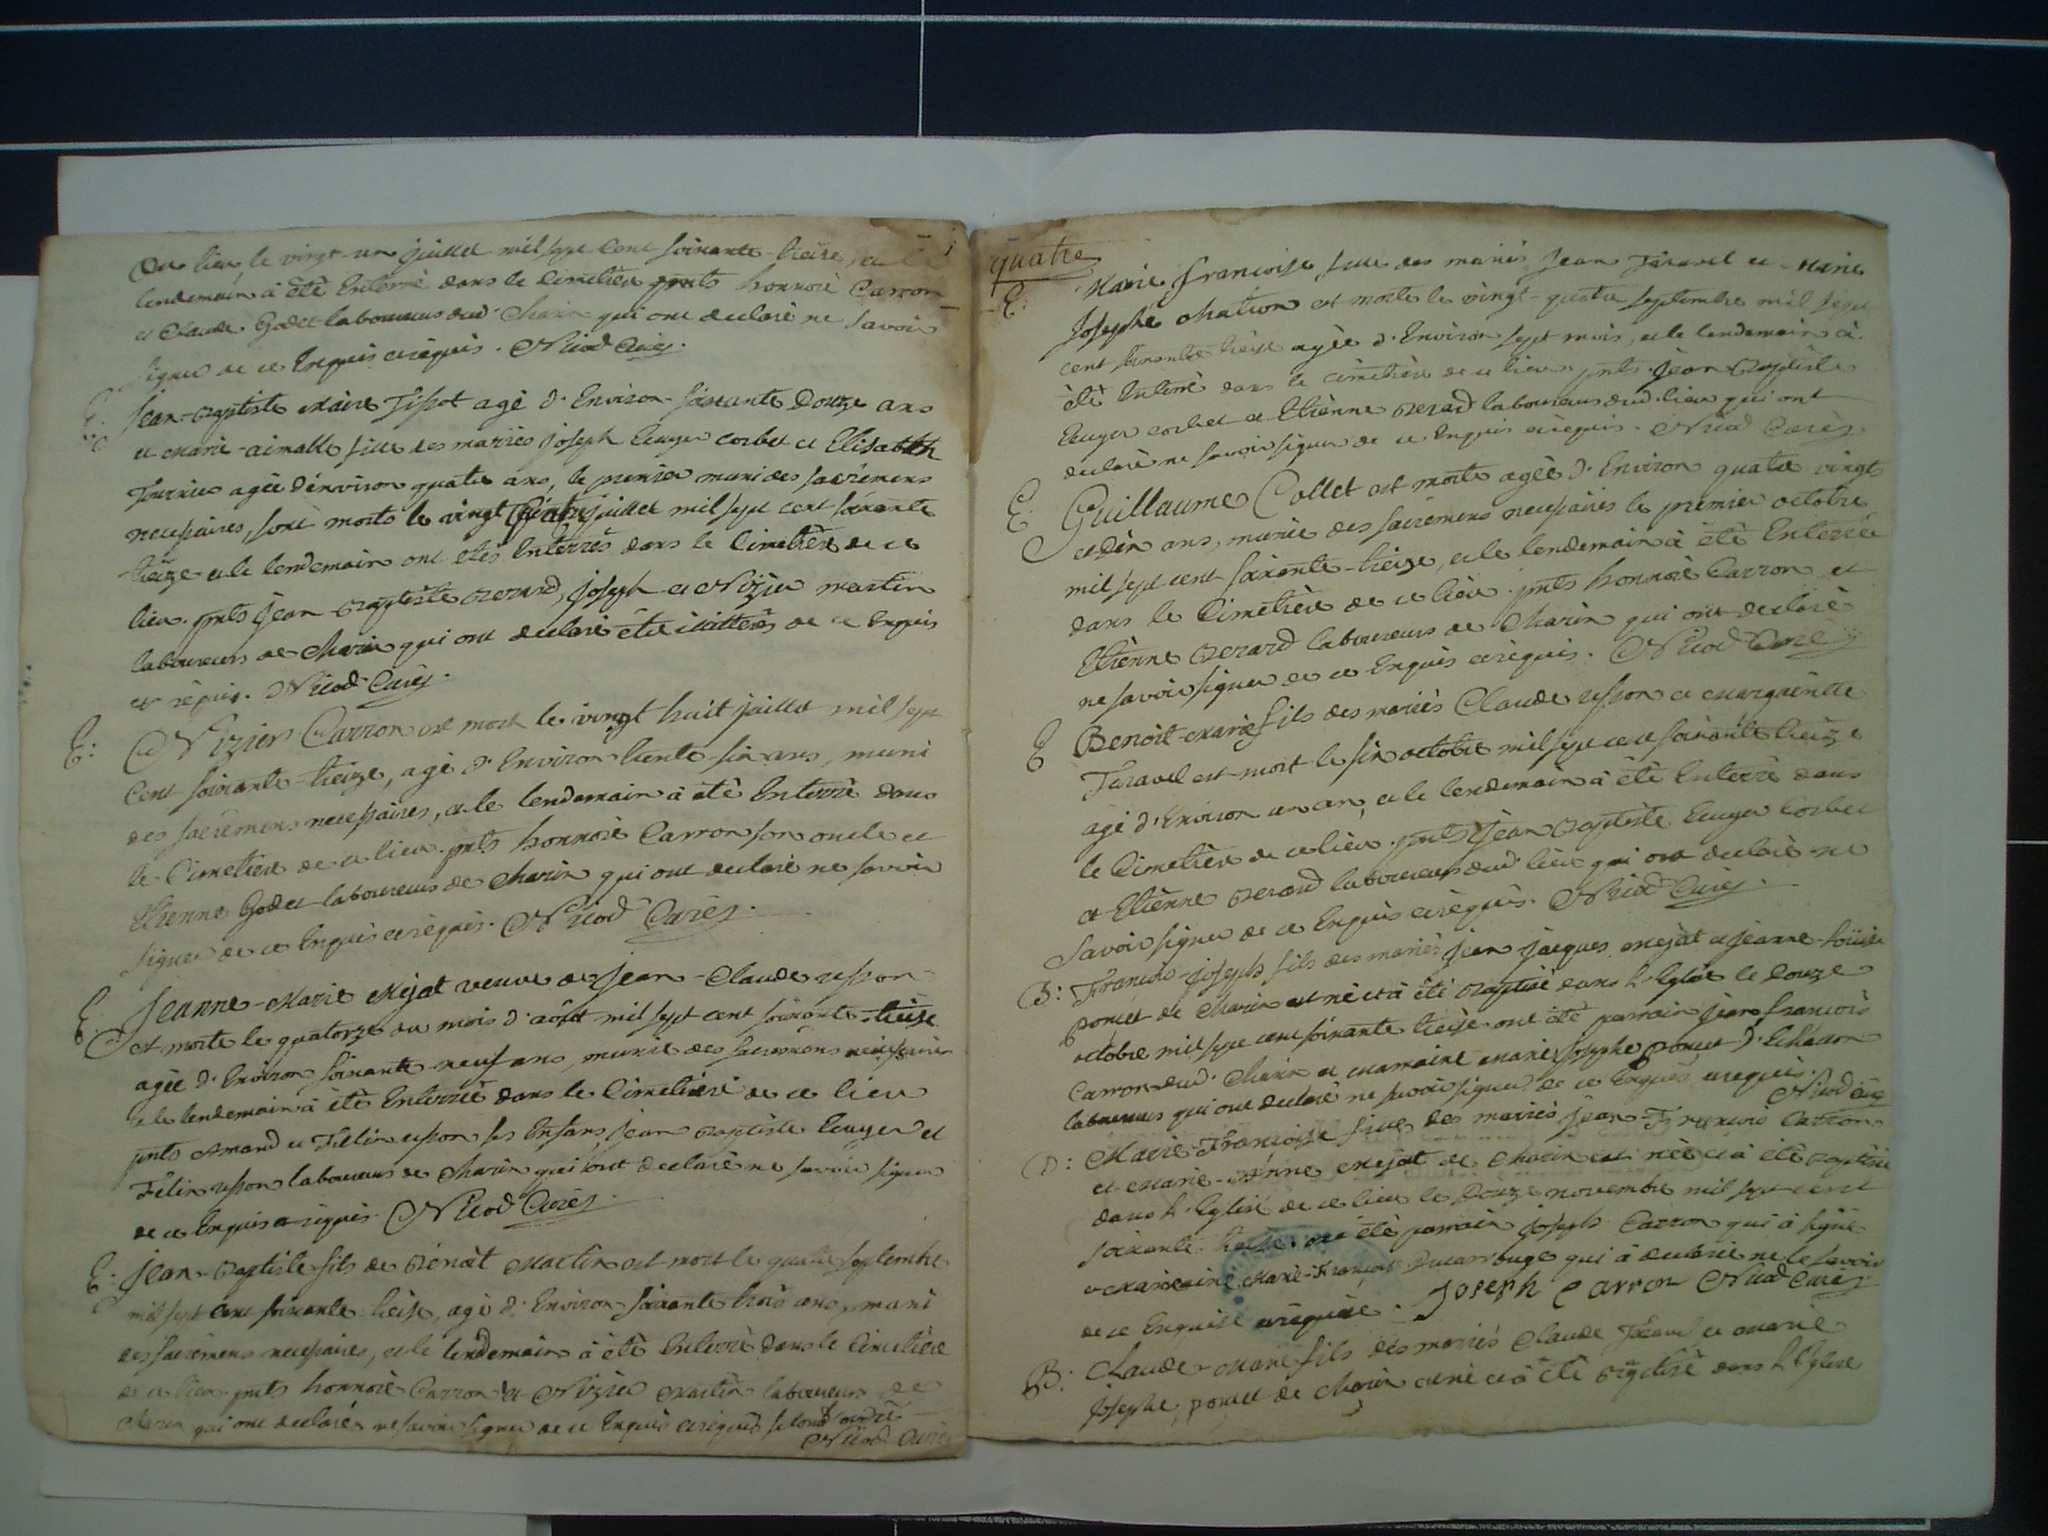 lieu, le vingt-un juillet mil sept cent soixante-treize, et le
lendemain à été Enterré dans le Cimetière pnts honnoré Carron
et Claude Godet laboureurs dud. Marin qui ont declaré ne savoir
signer de ce Enquis et réquis. Nicod Curé.
E. Jean-Baptiste Maire Tissot agé d'Environ soixante Douze ans
et Marie-aimable fille des mariés joseph Ecuyer corbet et Elisabeth
agée d'environ quatre ans, le premier muni des sacrémens
necessaires, sont morts le vingt juillet mil sept cent soixante
treize et le lendemain ont étés Enterrés dans le Cimetière de ce
lieu. pnts jean Baptiste Berard, joseph et Nizier martin
laboureurs de Marin qui ont declaré être illitterés de ce Enquis
et réquis. Nicod Curé.
E: Nizier Carron est mort le vingt huit juillet mil sept
Cent soixante-treize, agé d'Environ trente-six ans, muni
des sacrémens necessaires, et le lendemain à été Enterré dans
le Cimetière de ce lieu. pnts honnoré Carron son oncle et
Etienne Godet laboureurs de Marin qui ont declaré ne savoir
signer de ce Enquis et réquis. Nicod Curé.
E. Jeanne-Marie Mejat veuve de Jean-Claude
est morte le quatorze du mois d'août mil sept cent soixante-treise
agée d'Environ soixante-neuf ans, munie des sacremens necessaires
et le lendemain à été Enterrée dans le Cimetière de ce lieu
pnts Amand et Felix ses Enfans jean Baptiste Ecuyer et
Felix laboureurs de Marin qui ont declaré ne savoir signer
de ce Enquis et réquis. Nicod Curé.
E: Jean-Baptiste fils de Benoit Martin est mort le quatre septembre
mil sept cent soixante-treise, agé d'Environ soixante trois ans, muni
des sacrémens necessaires, et le lendemain à été Enterré dans le Cimetière
de ce lieu pnts honnoré Carron et Nizier Martin laboureurs de
Marin qui ont declaré ne savoir signer de ce Enquis et réquis
Nicod Curé
quatre
E: Marie françoise fille des mariés Jean Taravel et Marie
Josephe Mation est morte le vingt-quatre septembre mil sept
cent soixante treise agée d'Environ sept mois, et le lendemain à
été Enterré dans le cimetière de ce lieu pnts. jean Baptiste
Ecuyer corbet et Etienne Berard laboureurs dud. lieu qui ont
declaré ne savoir signer de ce Enquis et réquis. Nicod Curé
E. Guillaume Collet est morte agée d'Environ quatre vingt
et dix ans, munie des sacrémens necessaires le premier octobre
mil sept cent soixante-treize, et le lendemain à été Enterrée
dans le Cimetière de ce lieu. pnts honnoré Carron et
Etienne Berard laboureurs de Marin qui ont declaré
ne savoir signer de ce Enquis et réquis. Nicod Curé
E Benoit-Marie fils des mariés Claude et Marguerite
Taravel est mort le six octobre mil sept cent soixante treize
agé d'Environ un an, et le lendemain à été Enterré dans
le Cimetière de ce lieu. pnts jean Baptiste Ecuyer Corbet
et Etienne Berard laboureurs dud. lieu qui ont declaré ne
savoir signer de ce Enquis et réquis. Nicod Curé.
B: François-joseph fils des mariés jean jacques mejat et jeanne-
poncet de Marin est né et à été Baptisé dans l'Eglise le Douze
octobre mil sept cent soixante treise ont été parrain jean françois
Carron dud. Marin et marraine Marie josephe poncet
laboureurs qui ont declaré ne savoir signer de ce Enquis et réquis.
Nicod Curé
B: Marie Françoise fille des mariés jean-François Carron
et Marie-Anne Mejat de Marin est née et à été Baptisée
dans l'Eglise de ce lieu le Douze novembre mil sept cent
soixante-treise. ont été parrain joseph Carron qui à signé
et marraine Marie-Françoise qui à declaré ne le savoir
de ce Enquise et réquise. Joseph Carron Nicod Curé.
B: Claude-Marie fils des mariés Claude et Marie
Josephe poncet de Marin est né et à été Baptisé dans l'Eglise